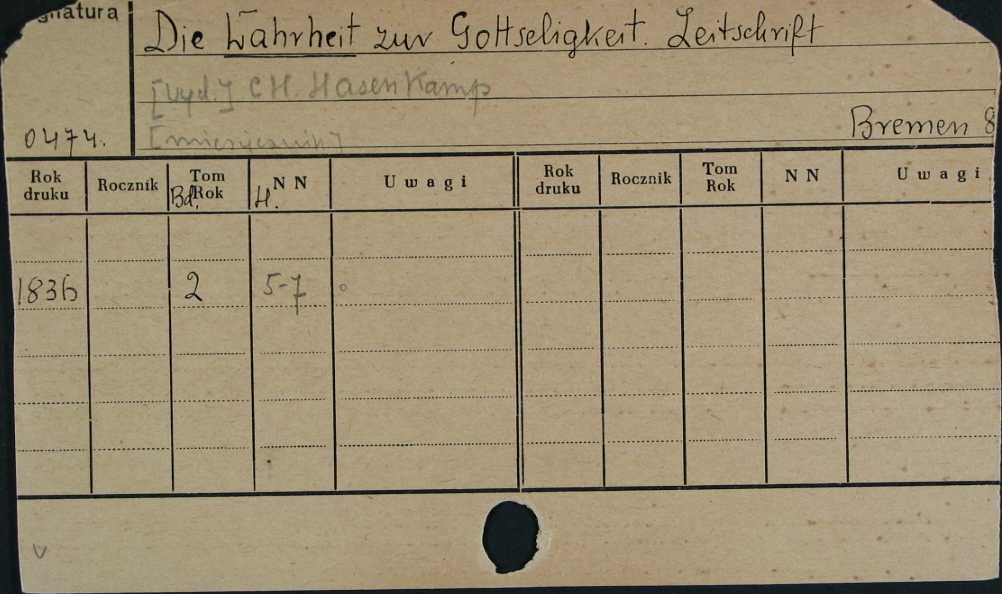 gnatura
Die Wahrheit zur Gottseligkeit. Zeitschrift
[wyd.] CH. Hasenkamp
0474.
[miesięcznik]
Bremen 8
Rok druku Rocznik Tom Rok Bd. N N H. U w a g i Rok druku Rocznik Tom Rok N N U w a g i
1836 2 5-7
v